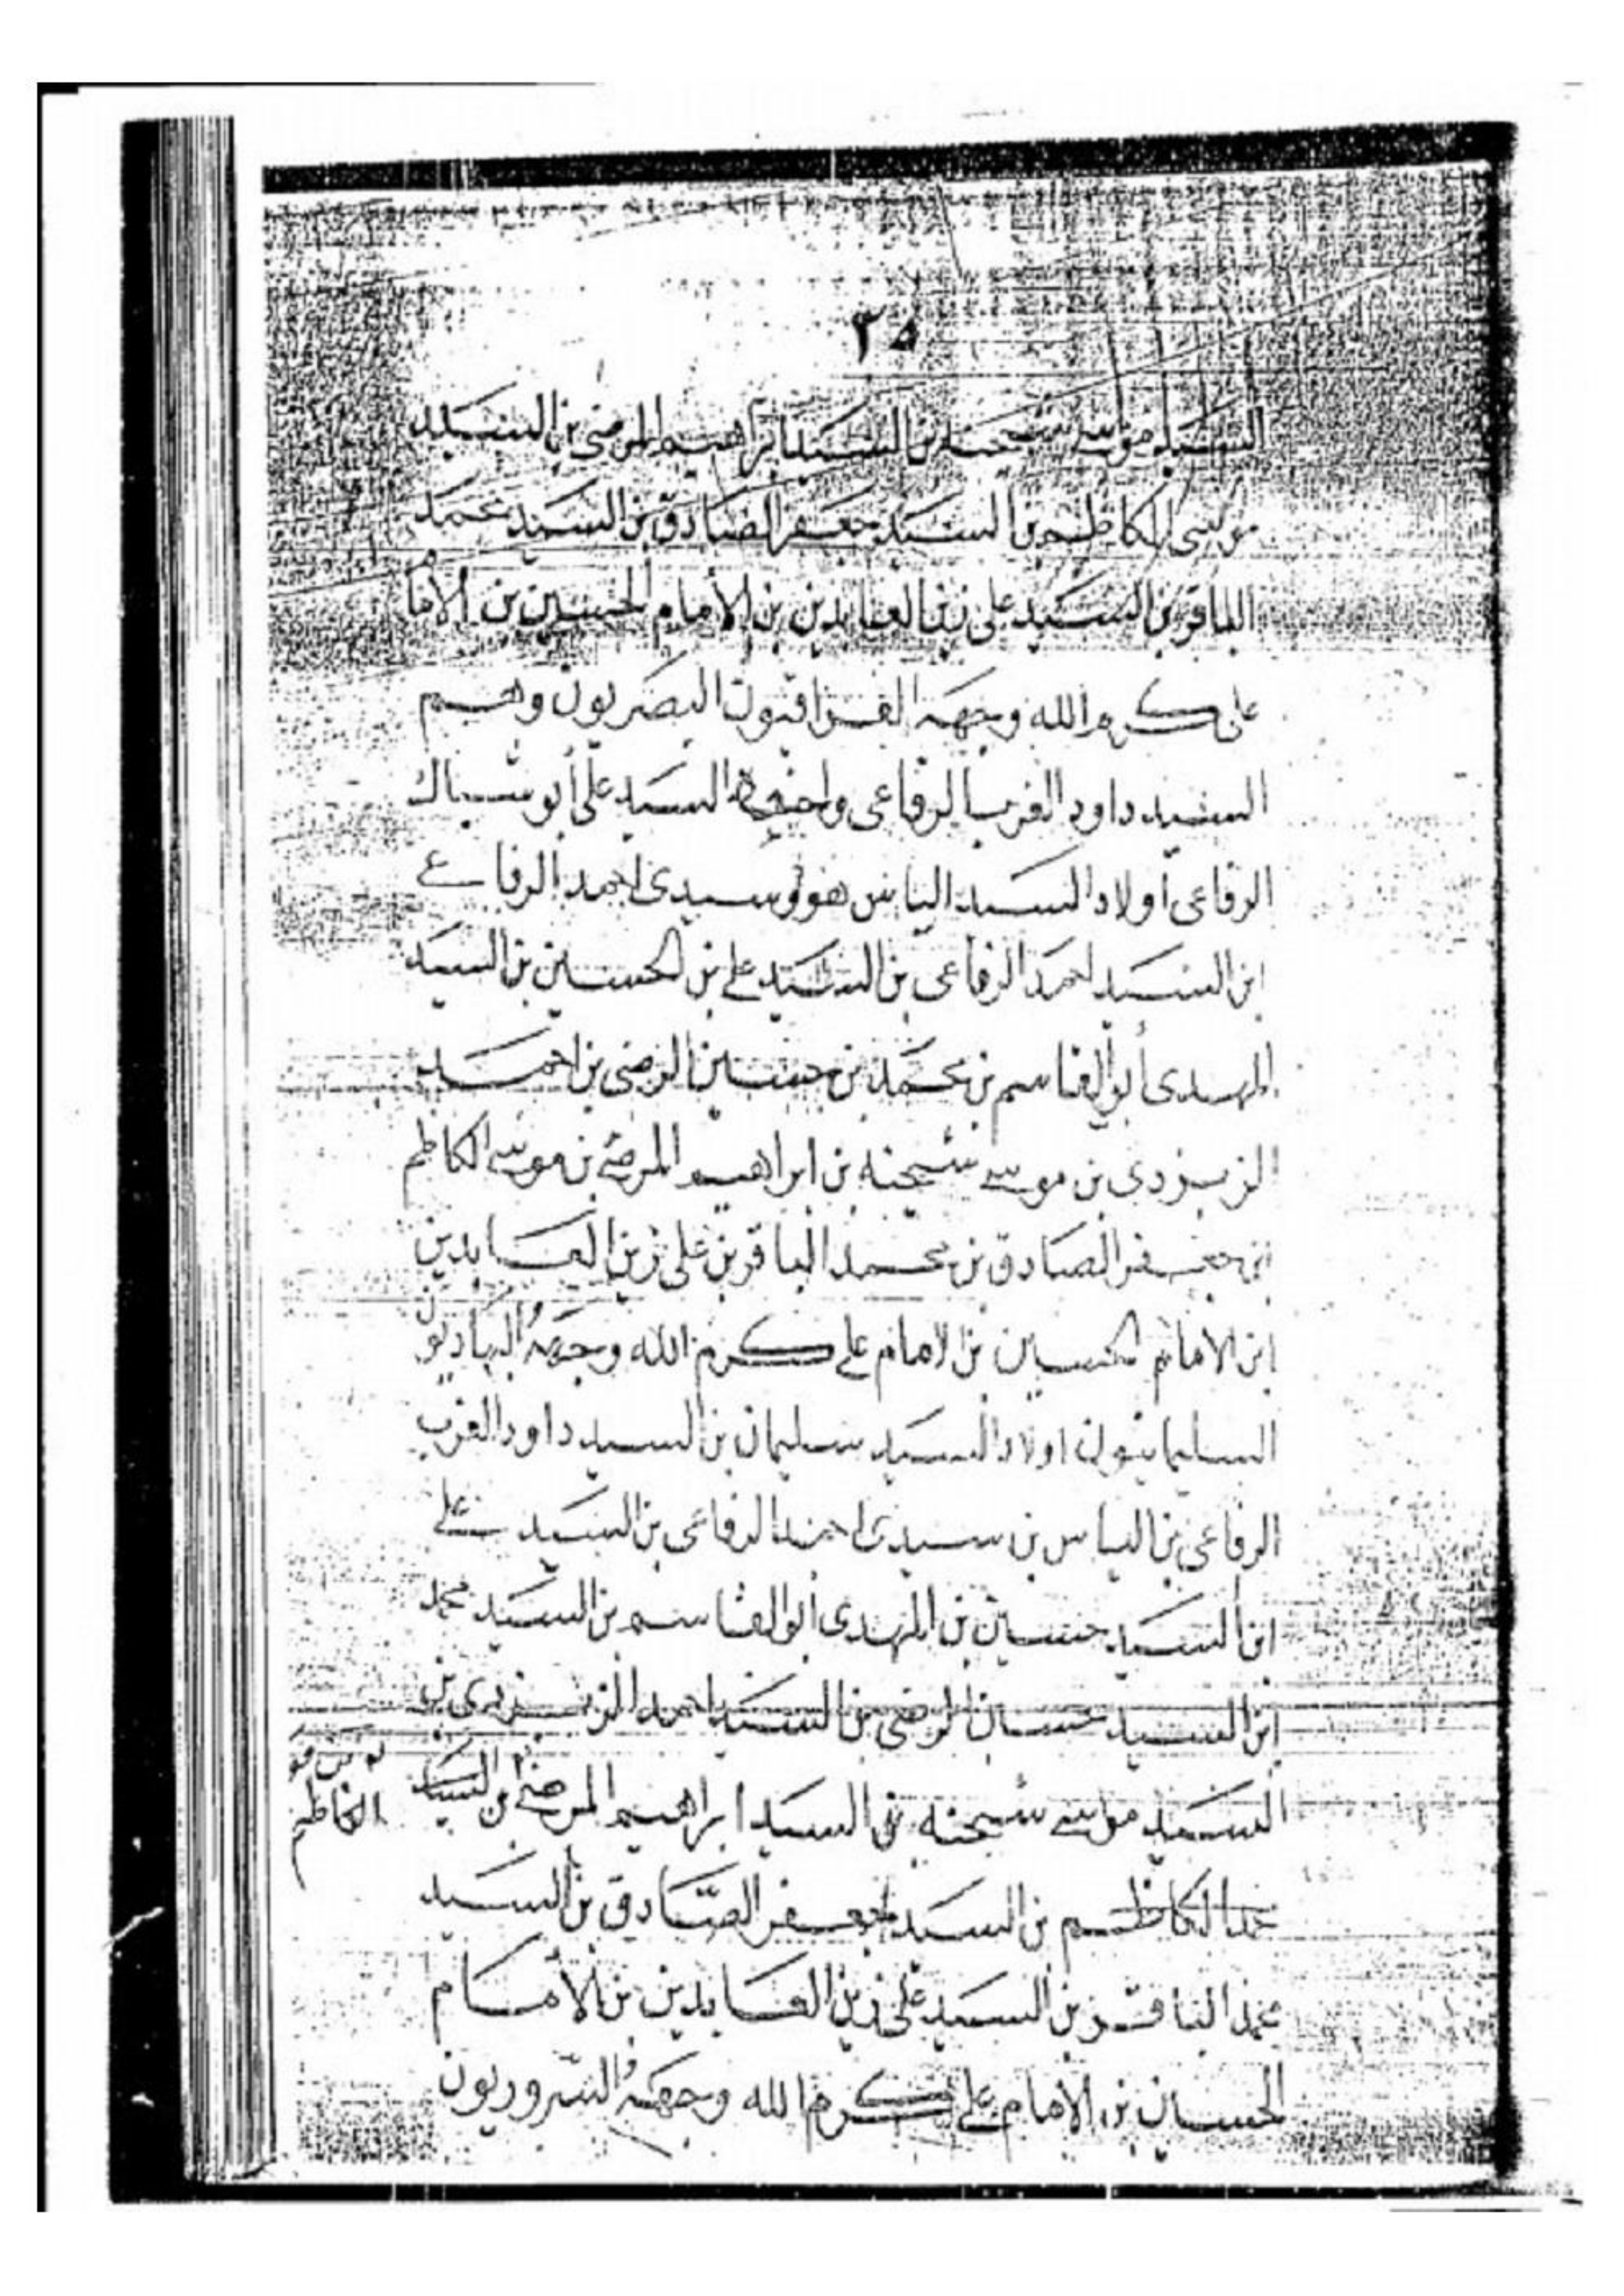 ٣٥
السيد موسى شيحنه بن السيد ابراهيم المرضى بن السيد
موسى الكاظم بن السيد جعفر الصادق بن السيد محمد
الباقر بن السيد على زين العابدين بن الامام الحسين بن الاما
على كرم الله وجهه البصريون وهم
السيد داود الغرب الرفاعى السيد على أبو شباك
الرفاعى أولاد السيد الياس سيدى احمد الرفاعى
ابن السيد احمد الرفاعى بن السيد على بن الحسين بن السيد
المهدى أبو القاسم بن محمد بن حسين الرضى بن احمد
بن موسى شيحنه بن ابراهيم المرضى بن موسى الكاظم
بن جعفر الصادق بن محمد الباقر بن على زين العابدين
ابن الامام الحسين بن الامام على كرم الله وجهه
السليمانيون اولاد السيد سليمان بن السيد داود الغرب
الرفاعى بن الياس بن سيدى احمد الرفاعى بن السيد على
ابن السيد حسين بن المهدى أبو القاسم بن السيد محمد
ابن السيد حسين الرضى بن السيد احمد بن
السيد موسى شيحنه بن السيد ابراهيم المرضى بن السيد
الكاظم
الكاظم بن السيد جعفر الصادق بن السيد
محمد الباقر بن السيد على زين العابدين بن الأمام
الحسين بن الامام على كرم الله وجهه السروريون